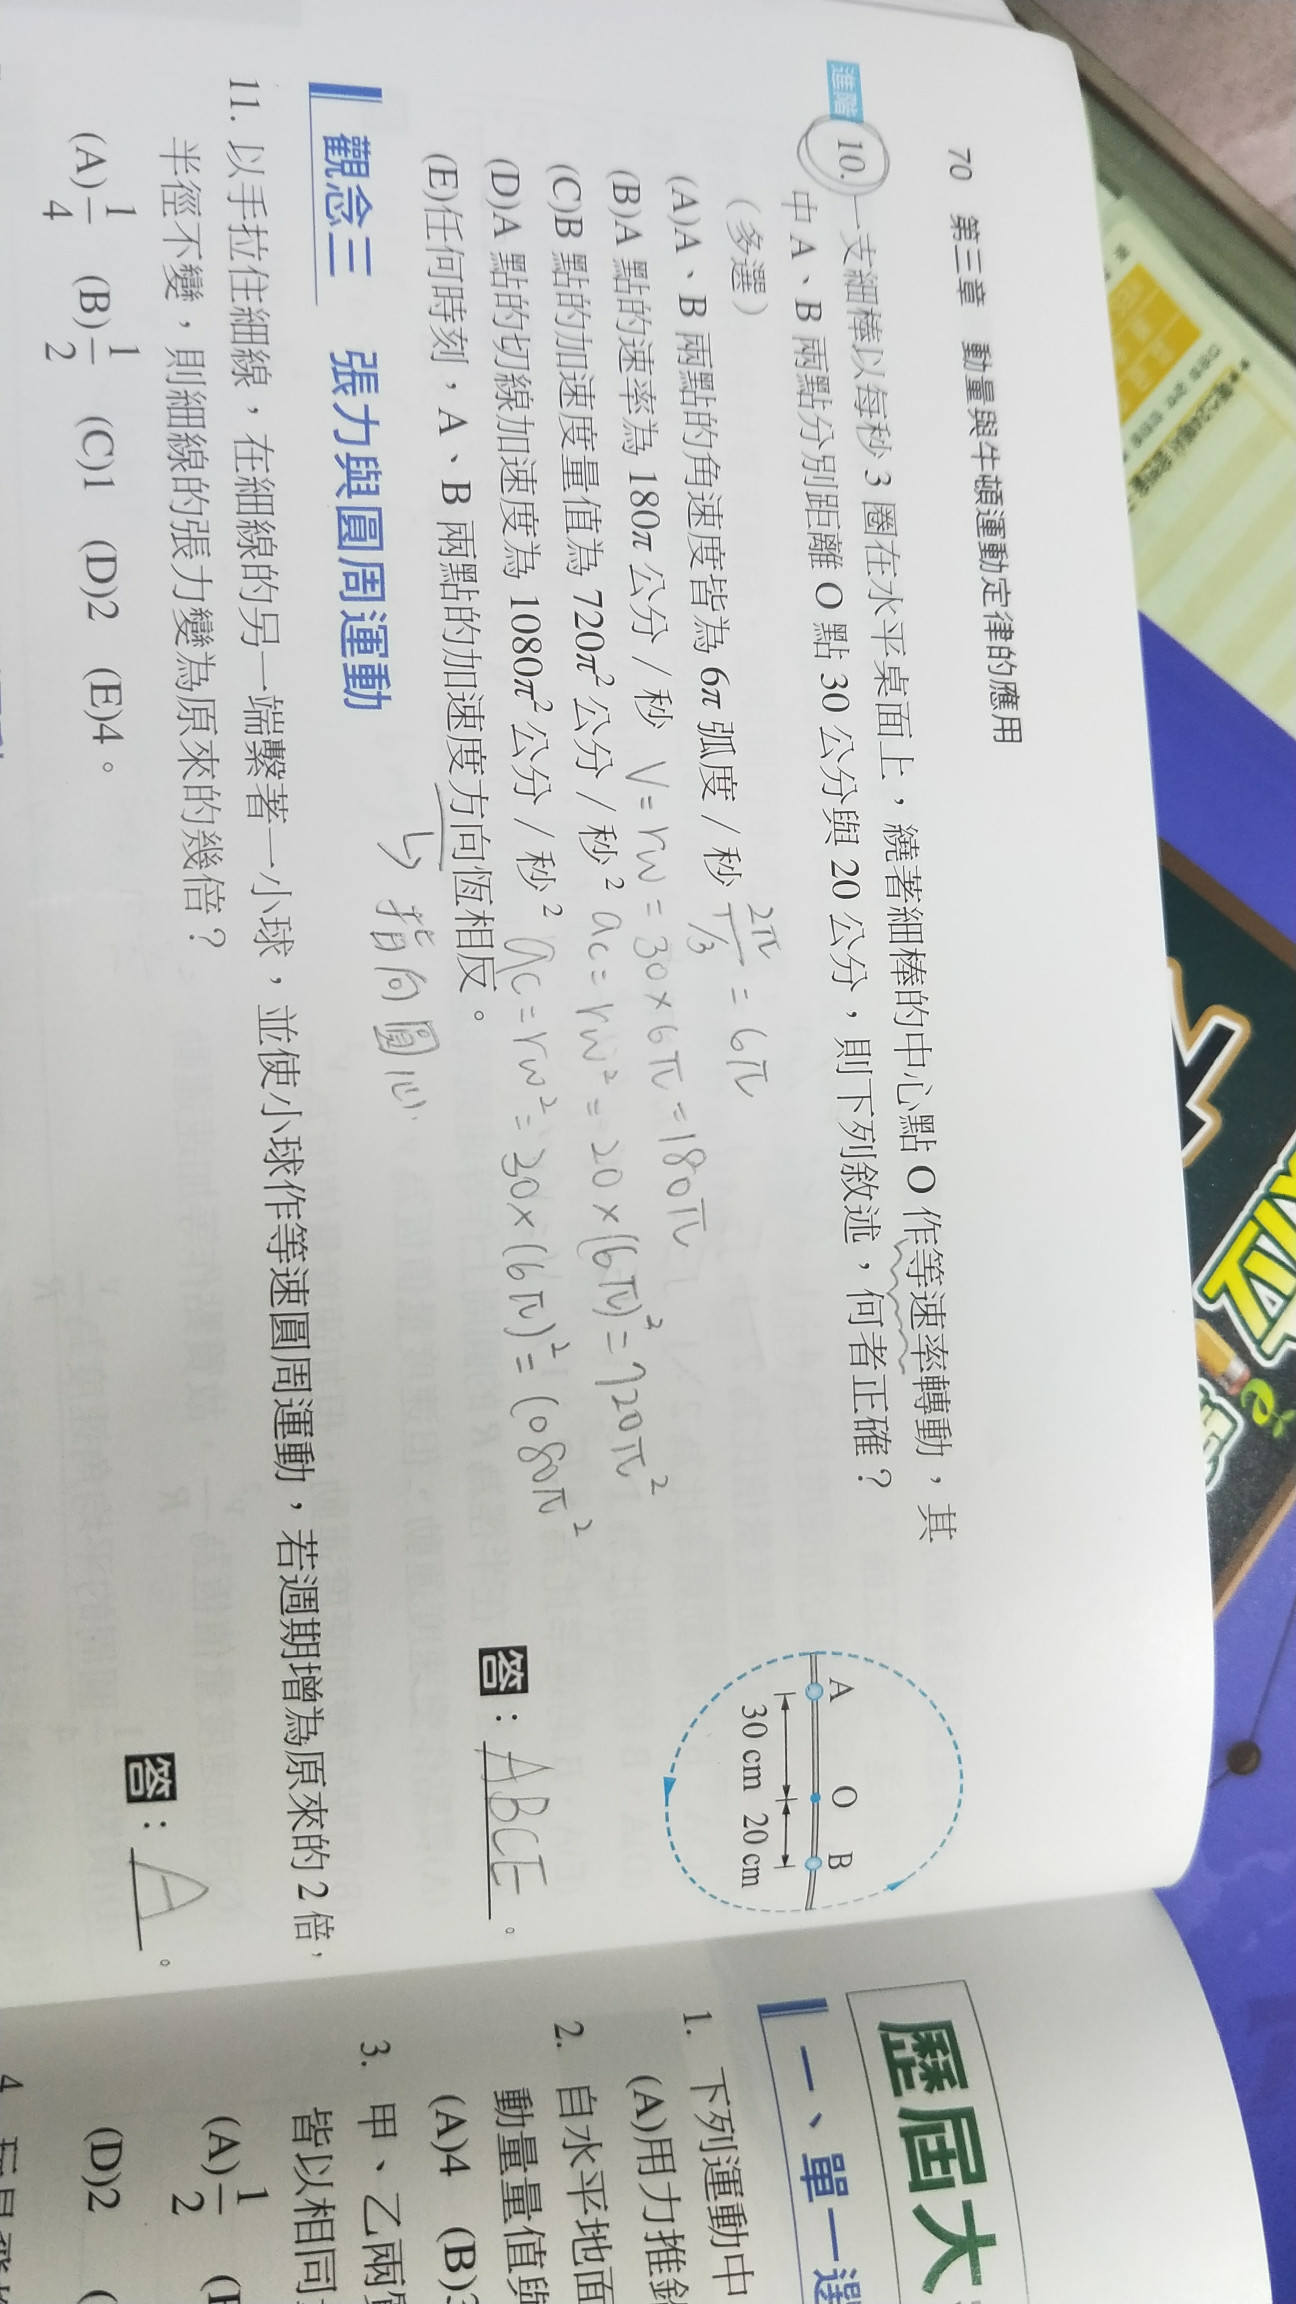 70 第三章 動量與牛頓運動定律的應用
進階 10. 一支細棒以每秒 3 圈在水平桌面上，繞著細棒的中心點 O 作等速率轉動，其
中 A、B 兩點分別距離 O 點 30 公分與 20 公分，則下列敘述，何者正確？
（多選）
(A)A、B 兩點的角速度皆為 6π 弧度 / 秒 2π/(1/3) = 6π
(B)A 點的速率為 180π 公分 / 秒 V = rw = 30 × 6π = 180π
(C)B 點的加速度量值為 720π² 公分 / 秒² ac = rw² = 20 × (6π)² = 720π²
(D)A 點的切線加速度為 1080π² 公分 / 秒² ac = rw² = 30 × (6π)² = 1080π²
(E)任何時刻，A、B 兩點的加速度方向恆相反。
↳ 指向圓心
A O B
30 cm 20 cm
答：ABCE。
觀念三 張力與圓周運動
11. 以手拉住細線，在細線的另一端繫著一小球，並使小球作等速圓周運動，若週期增為原來的 2 倍，
半徑不變，則細線的張力變為原來的幾倍？
(A)1/4 (B)1/2 (C)1 (D)2 (E)4。
答：A。
歷屆大
一、單一選
1. 下列運動中
(A)用力推鉛
2. 自水平地面
動量量值與
(A)4 (B)3
3. 甲、乙兩
皆以相同
(A)1/2
(D)2
4